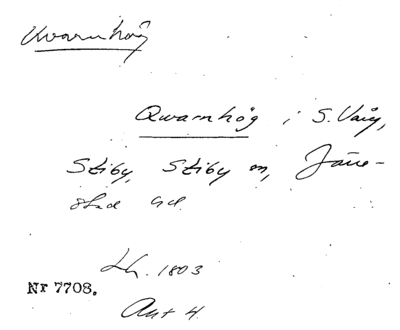 Kvarnhög
Qwarnhög i S. Våg,
Stiby, Stiby sn, Järre-
stad hd.
Lh. 1803
Nr 7708.
Akt 4.